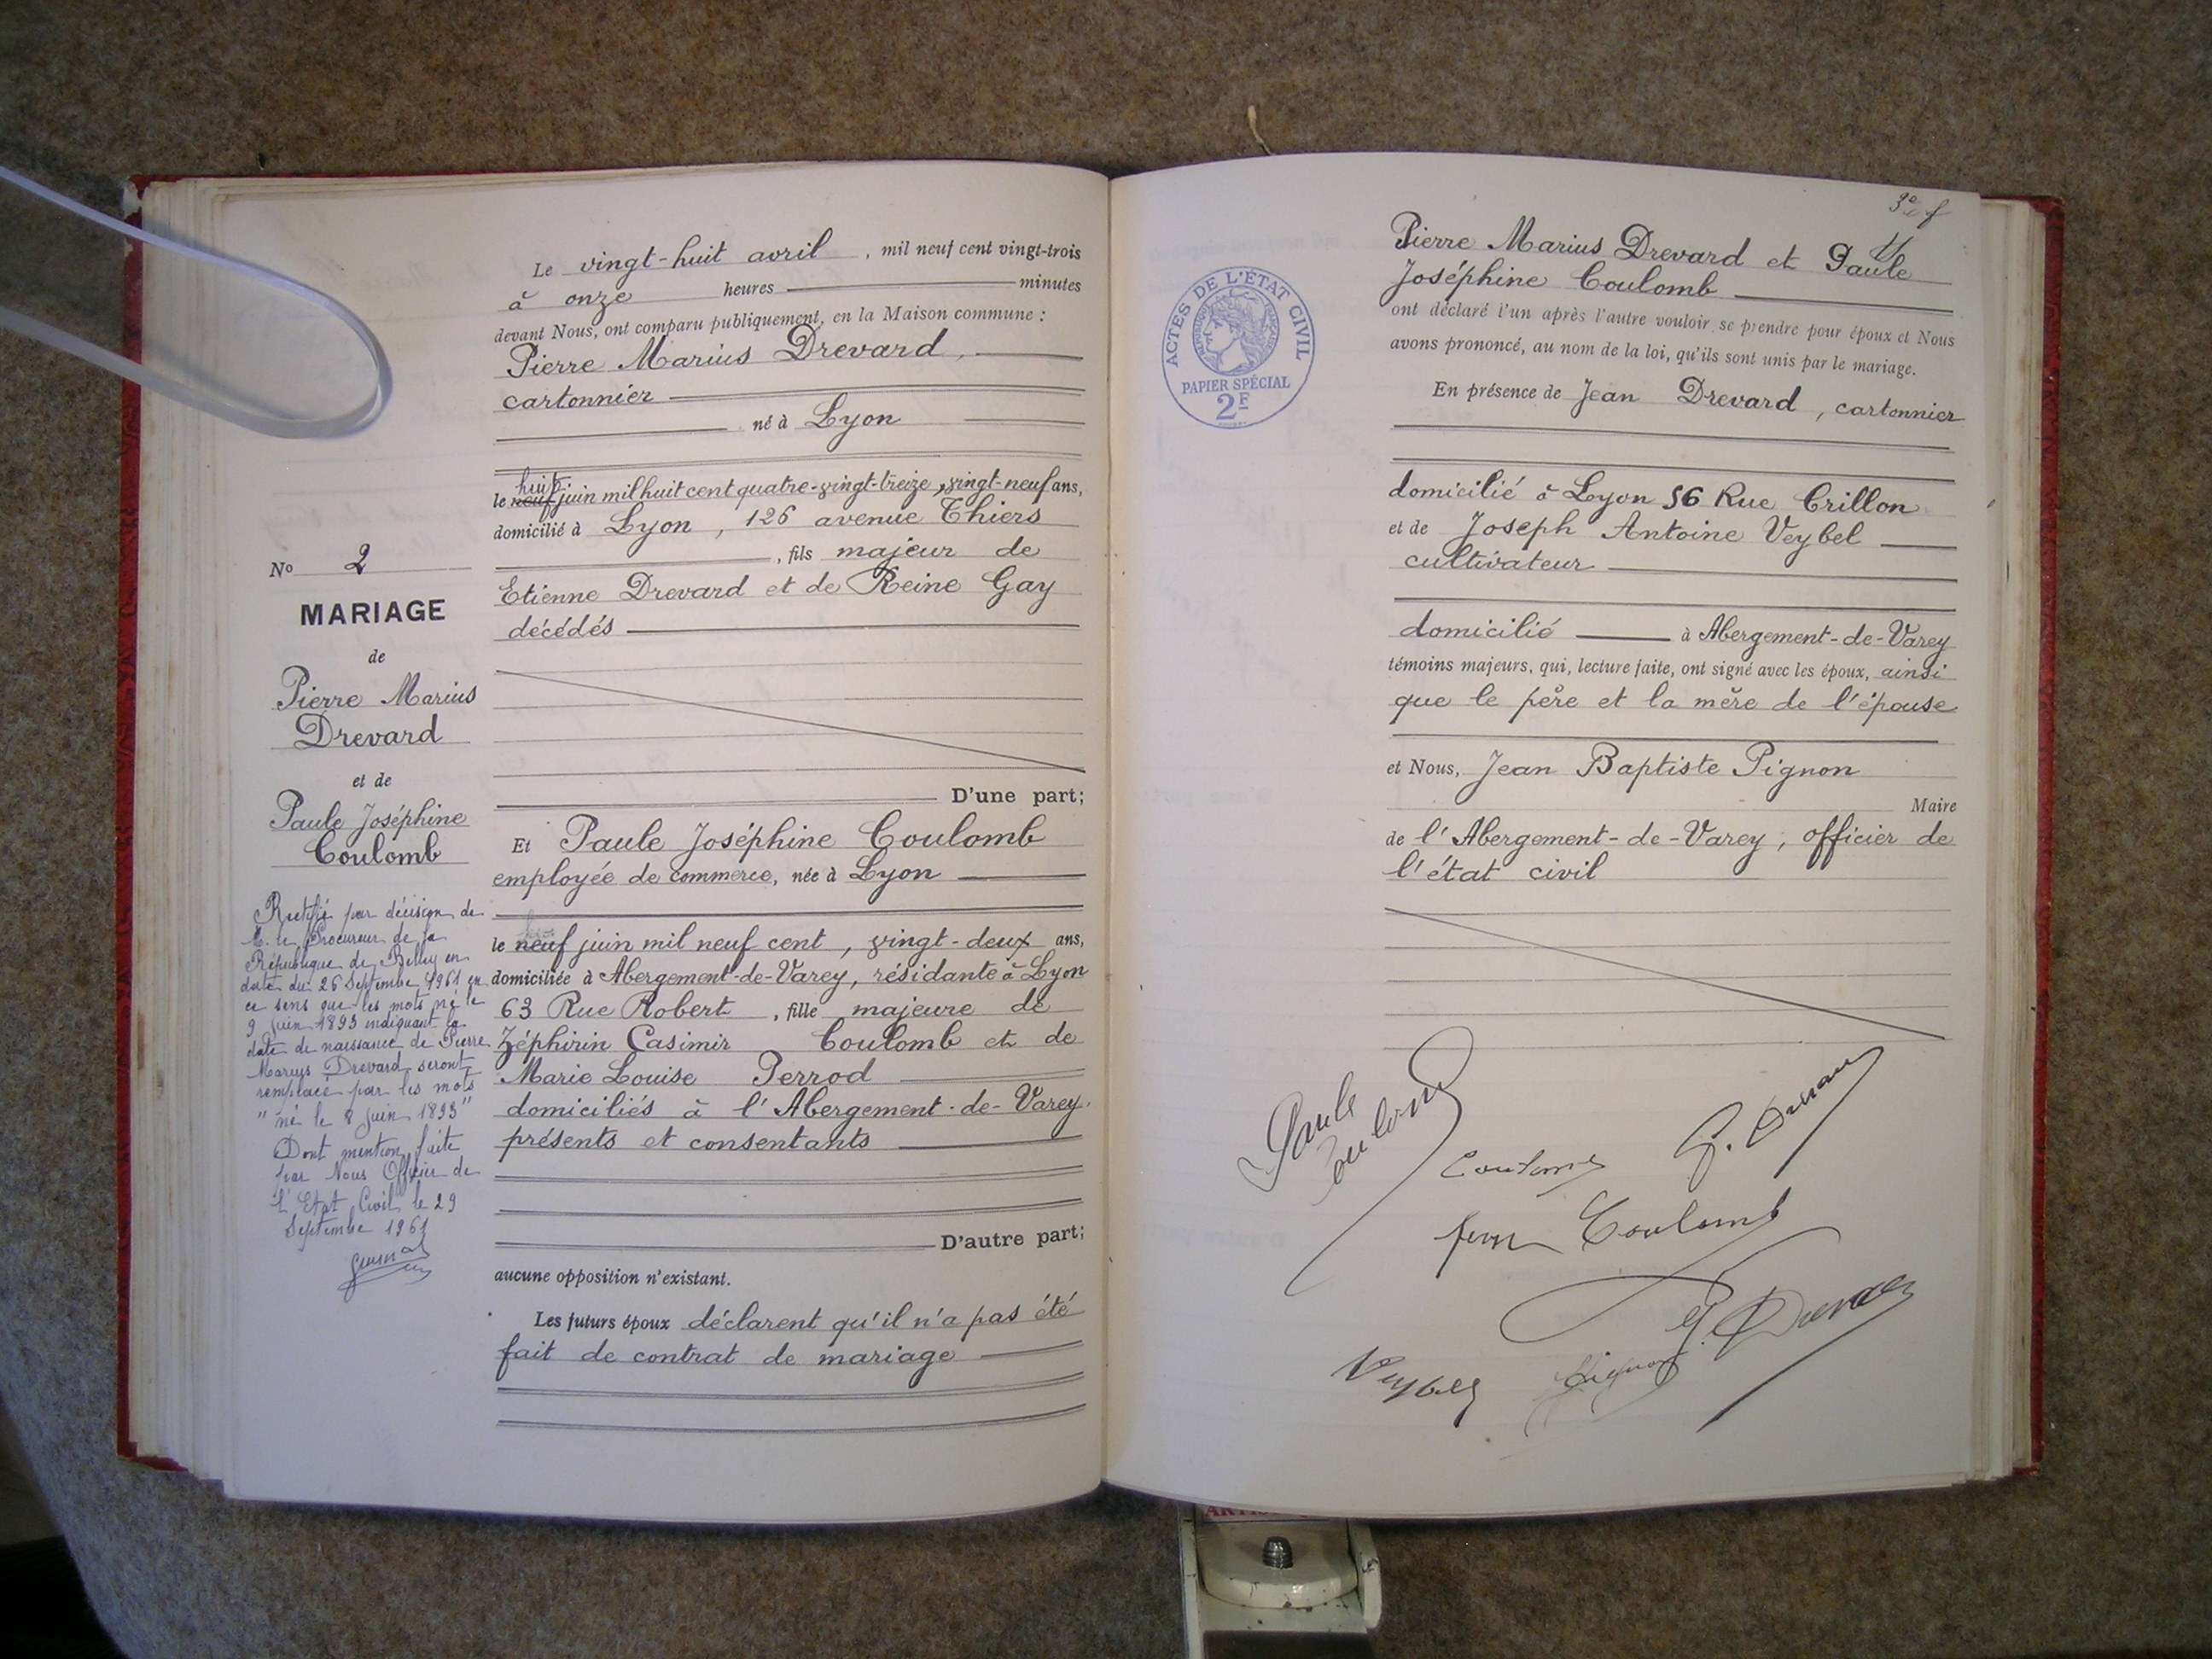 Le vingt-huit avril, mil neuf cent vingt-trois
à onze heures minutes
devant Nous, ont comparu publiquement, en la Maison commune :
Pierre Marius Drevard,
cartonnier
né à Lyon
huit
le neuf juin mil huit cent quatre-vingt-treize, vingt-neuf ans,
domicilié à Lyon, 126 avenue Thiers
, fils majeur de
Etienne Drevard et de Reine Gay
décédés
D'une part;
Et Paule Joséphine Coulomb
employée de commerce, née à Lyon
le neuf juin mil neuf cent, vingt-deux ans,
domiciliée à Abergement-de-Varey, résidante à Lyon
63 Rue Robert, fille majeure de
Zéphirin Casimir Coulomb et de
Marie Louise Perrod
domiciliés à l'Abergement-de-Varey.
présents et consentants
D'autre part;
aucune opposition n'existant.
Les futurs époux déclarent qu'il n'a pas été
fait de contrat de mariage
No 2
MARIAGE
de
Pierre Marius
Drevard
et de
Paule Joséphine
Coulomb
Rectifié par décision de
M. le Procureur de la
République de Belley en
date du 26 Septembre 1961 en
ce sens que les mots né le
9 juin 1893 indiquant la
date de naissance de Pierre
Marius Drevard seront
remplacé par les mots
"né le 8 juin 1893"
Dont mention faite
par Nous Officier de
l'Etat Civil le 29
Septembre 1961
ACTES DE L'ÉTAT CIVIL
PAPIER SPÉCIAL
2F
Pierre Marius Drevard et Paule
Joséphine Coulomb
ont déclaré l'un après l'autre vouloir se prendre pour époux et Nous
avons prononcé, au nom de la loi, qu'ils sont unis par le mariage.
En présence de Jean Drevard, cartonnier
domicilié à Lyon 56 Rue Crillon
et de Joseph Antoine Veybel
cultivateur
domicilié à Abergement-de-Varey
témoins majeurs, qui, lecture faite, ont signé avec les époux, ainsi
que le père et la mère de l'épouse
et Nous, Jean Baptiste Pignon
Maire
de l'Abergement-de-Varey, officier de
l'état civil
Paule
Coulomb
Coulomb
Coulomb
Veybel
Pignon